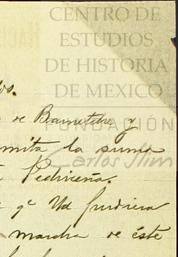 CENTRO DE
ESTUDIOS
DE HISTORIA
DE MEXICO
FUNDACIÓN
Carlos Slim
os.
de Barrutebe, y
mita la suma
Pedriceña.
qe Ud pudiera
marcha de éste